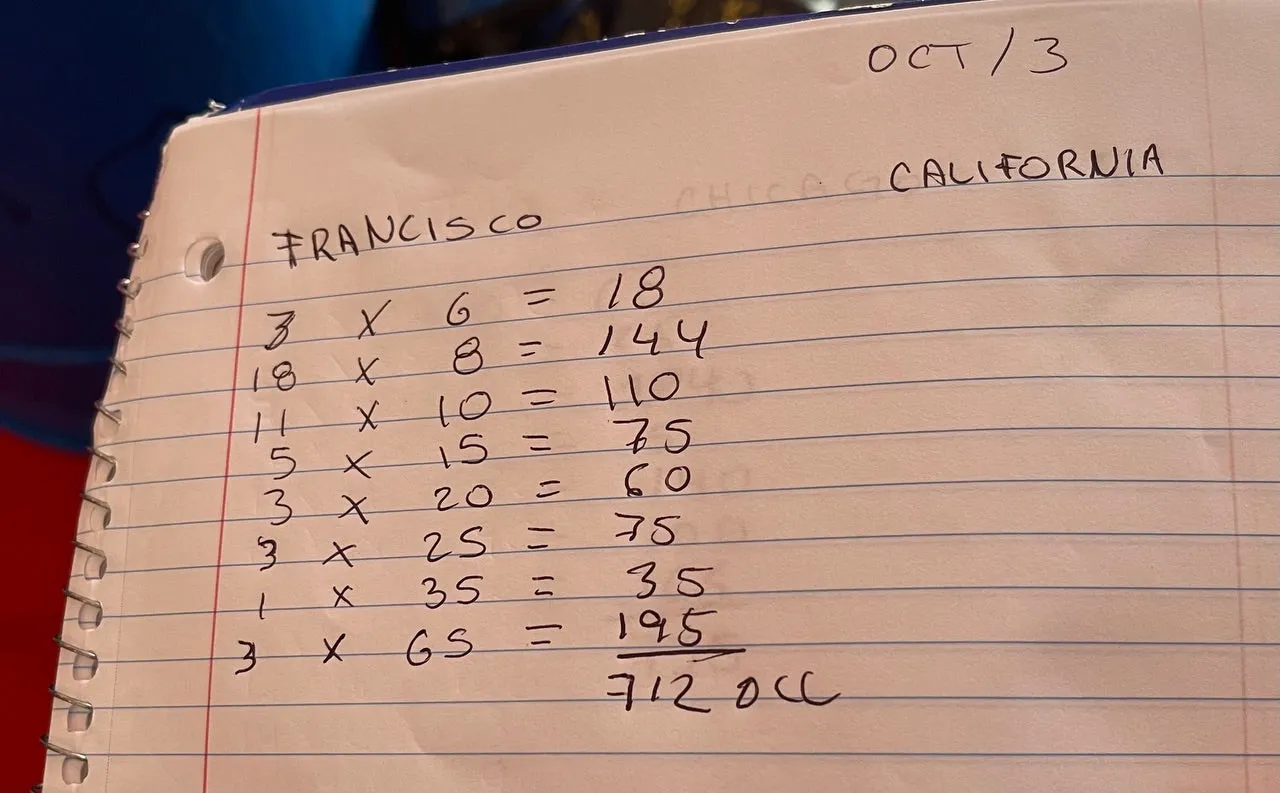 OCT/3
CALIFORNIA
FRANCISCO
3 X 6 = 18
18 X 8 = 144
11 X 10 = 110
5 X 15 = 75
3 X 20 = 60
3 X 25 = 75
1 X 35 = 35
3 X 65 = 195
712 OCC